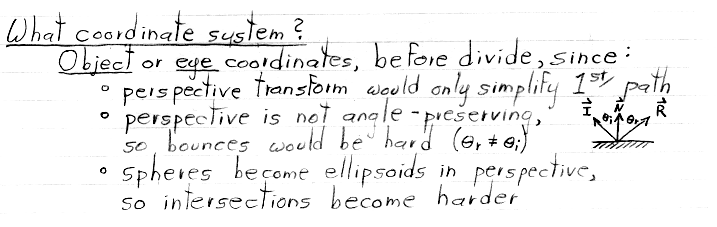 What coordinate system?
Object or eye coordinates, before divide, since:
° perspective transform would only simplify 1st path
° perspective is not angle-preserving,
so bounces would be hard (θr ≠ θi)
I⃗ θi N⃗ θr R⃗
° spheres become ellipsoids in perspective,
so intersections become harder